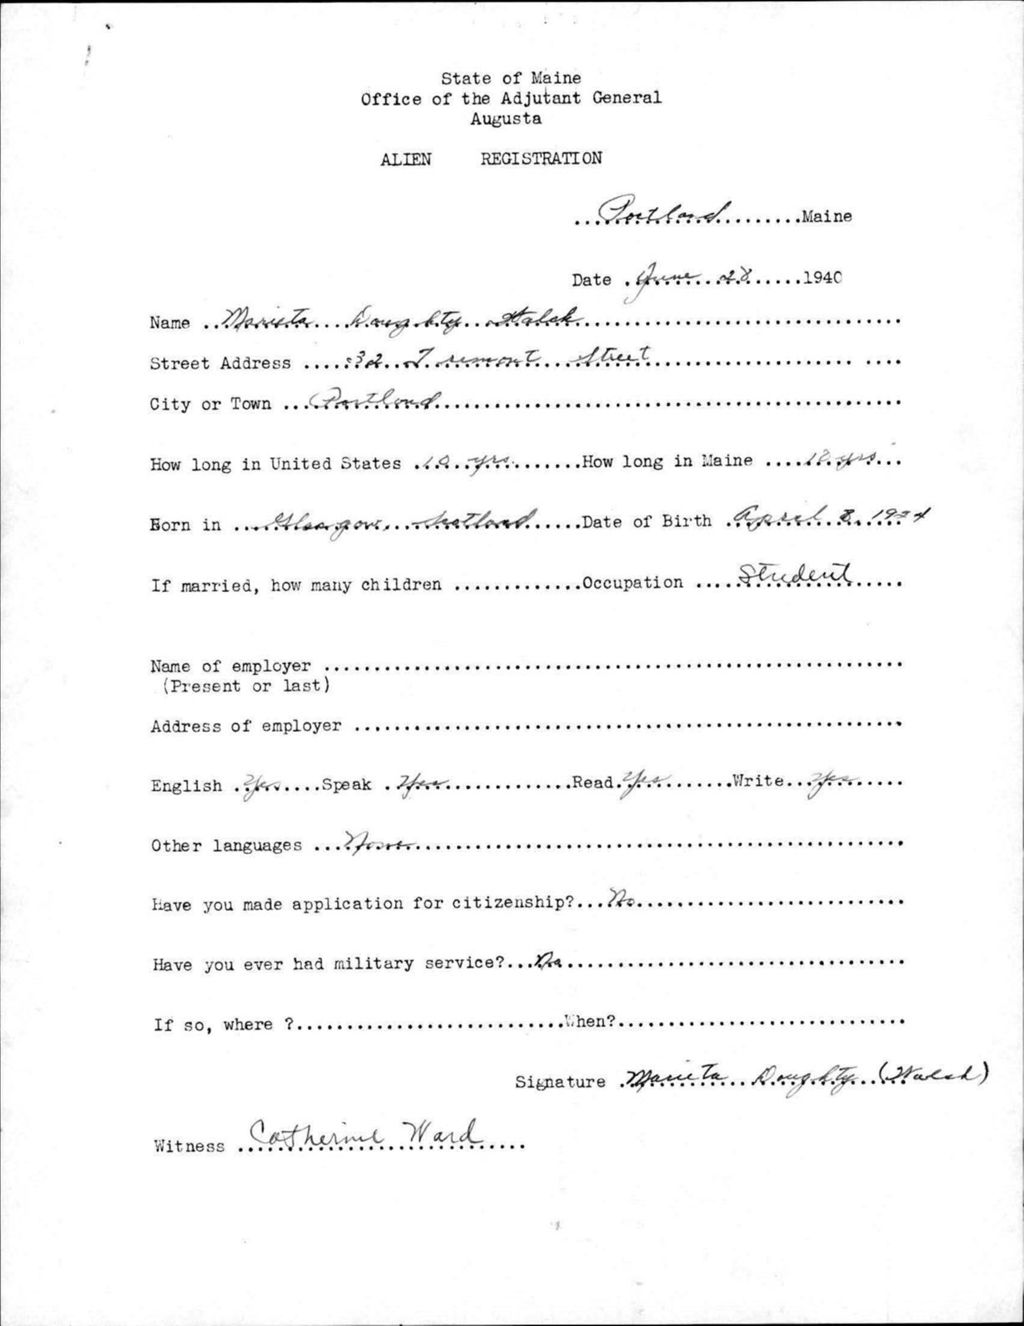 State of Maine
Office of the Adjutant General
Augusta
ALIEN REGISTRATION
Portland Maine
Date June 28 1940
Name Marieta Doughty Walsh
Street Address 32 Tremont Street
City or Town Portland
How long in United States yrs. How long in Maine yrs
Born in Glasgow, Scotland Date of Birth April 8, 1924
If married, how many children Occupation Student
Name of employer
(Present or last)
Address of employer
English Yes Speak Yes Read Yes Write Yes
Other languages None
Have you made application for citizenship? No
Have you ever had military service? No
If so, where ? When?
Signature Marieta Doughty (Walsh)
Witness Catherine Ward